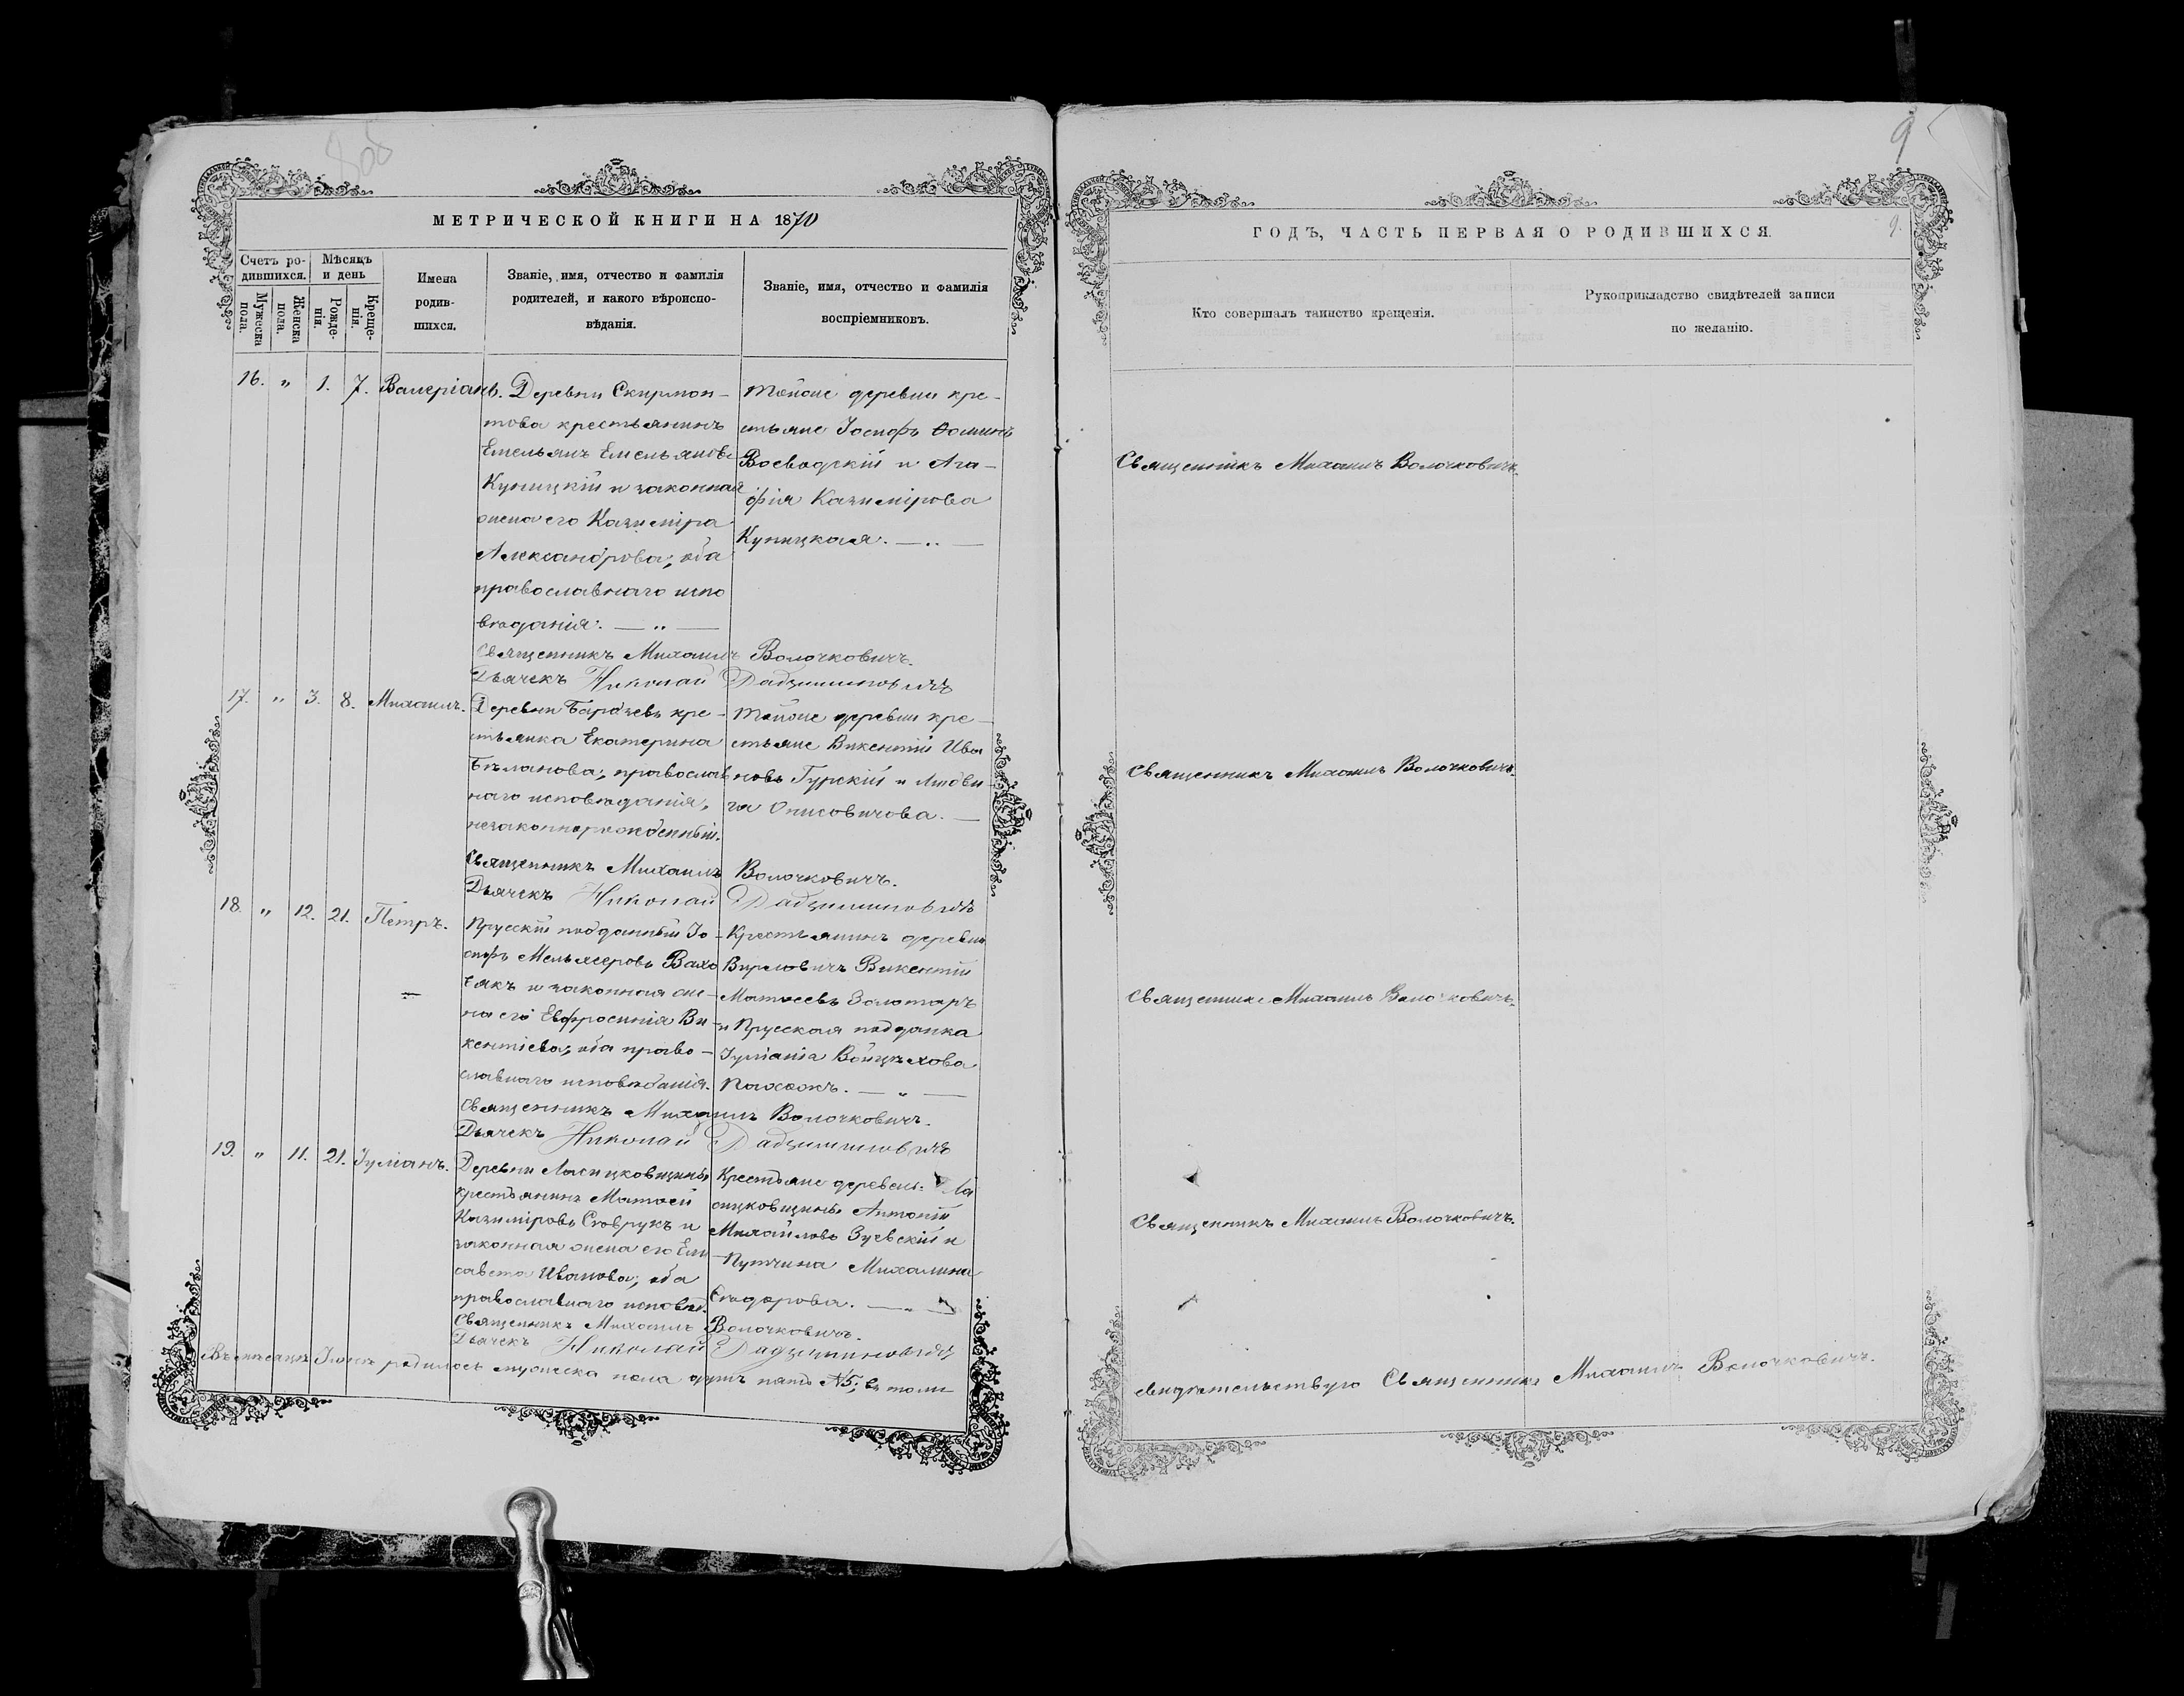 МЕТРИЧЕСКОЙ КНИГИ НА 1870
Счетъ родившихся.
Мѣсяцъ и день
Мужеска пола.
Женска пола.
Рожденія.
Крещенія.
Имена родившихся.
Званіе, имя, отчество и фамилія
родителей, и какого вѣроиспо-
вѣданія.
Званіе, имя, отчество и фамилія
воспріемниковъ.
16. " 1. 7. Валеріанъ.
Деревни Скирмон-
това крестьянинъ
Емельянъ Емельяновъ
Куницкій и законная
жена его Казиміра
Александрова; оба
православнаго испо
вѣданія. — " —
Тойже деревни кре-
стьяне Іосифъ Ѳоминъ
Воеводскій и Ага-
фія Казимірова
Куницкая. — " —
Священникъ Михаилъ Волочковичъ.
Дьячекъ Николай
17. " 3. 8. Михаилъ.
Деревни кре-
стьянка Екатерина
православ
наго исповѣданія,
незаконнорожденный.
Тойже деревни кре-
стьяне Викентій Ива
новъ Гурскій и Людви-
га
Священникъ Михаилъ Волочковичъ.
Дьячекъ Николай
18. " 12. 21. Петръ.
Прусскій подданный Іо-
сифъ
и законная же-
на его Евфросинія Ви-
кентіева; оба право-
славнаго исповѣданія.
Крестьянинъ деревни
Викентій
Матѳеевъ Золотаръ
и Прусская подданка
Іуліанія Войцѣхова
Священникъ Михаилъ Волочковичъ.
Дьячекъ Николай
19. " 11. 21. Іуліанъ.
Деревни
крестьянинъ Матѳей
Казиміровъ и
законная жена его Ели
савета Иванова; оба
православнаго исповѣд.
Крестьяне деревень: Ла
сицковщины Антоній
Михайловъ Зуевскій и
Путчина Михалина
Священникъ Михаилъ Волочковичъ.
Дьячекъ Николай
Въ мѣсяцѣ Іюнѣ родилось мужеска пола душъ пять №5; въ томъ
9
ГОДЪ, ЧАСТЬ ПЕРВАЯ О РОДИВШИХСЯ.
9.
Кто совершалъ таинство крещенія.
Рукоприкладство свидѣтелей записи
по желанію.
Священникъ Михаилъ Волочковичъ.
Священникъ Михаилъ Волочковичъ.
Священникъ Михаилъ Волочковичъ.
Священникъ Михаилъ Волочковичъ.
свидѣтельствую Священникъ Михаилъ Волочковичъ.